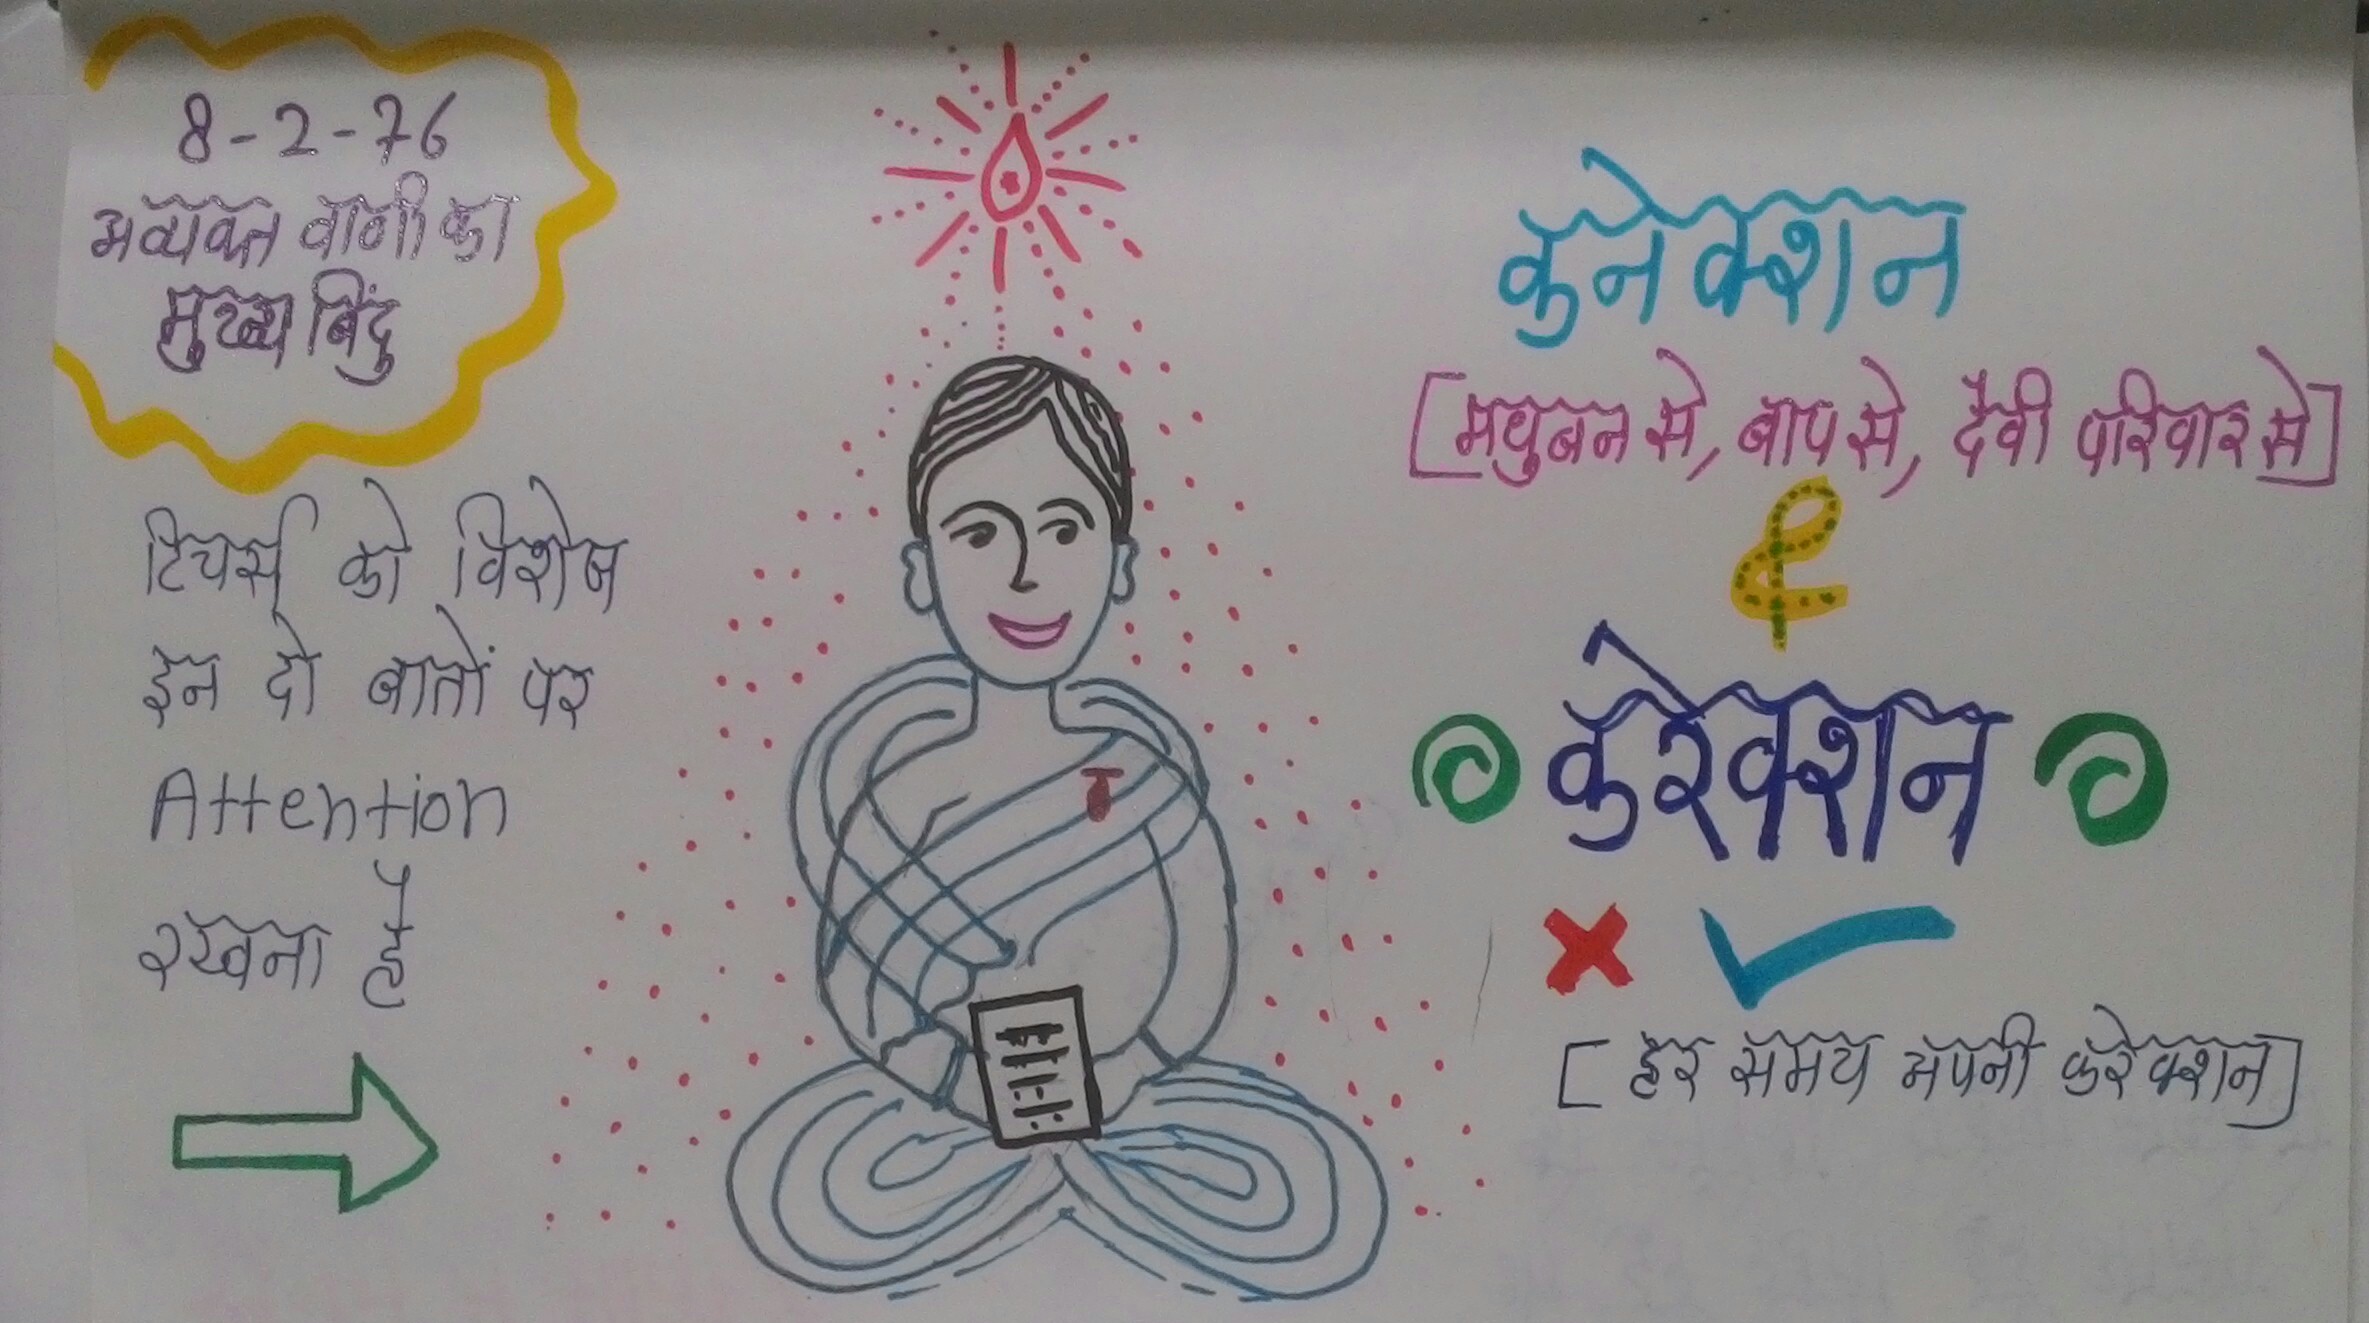 8-2-76
अव्यक्त वाणी का
मुख्य बिंदु
टिचर्स को विशेष
इन दो बातों पर
Attention
रखना है
कनेक्शन
[मधुबन से, बाप से, दैवी परिवार से]
&
करेक्शन
[हर समय अपनी करेक्शन]